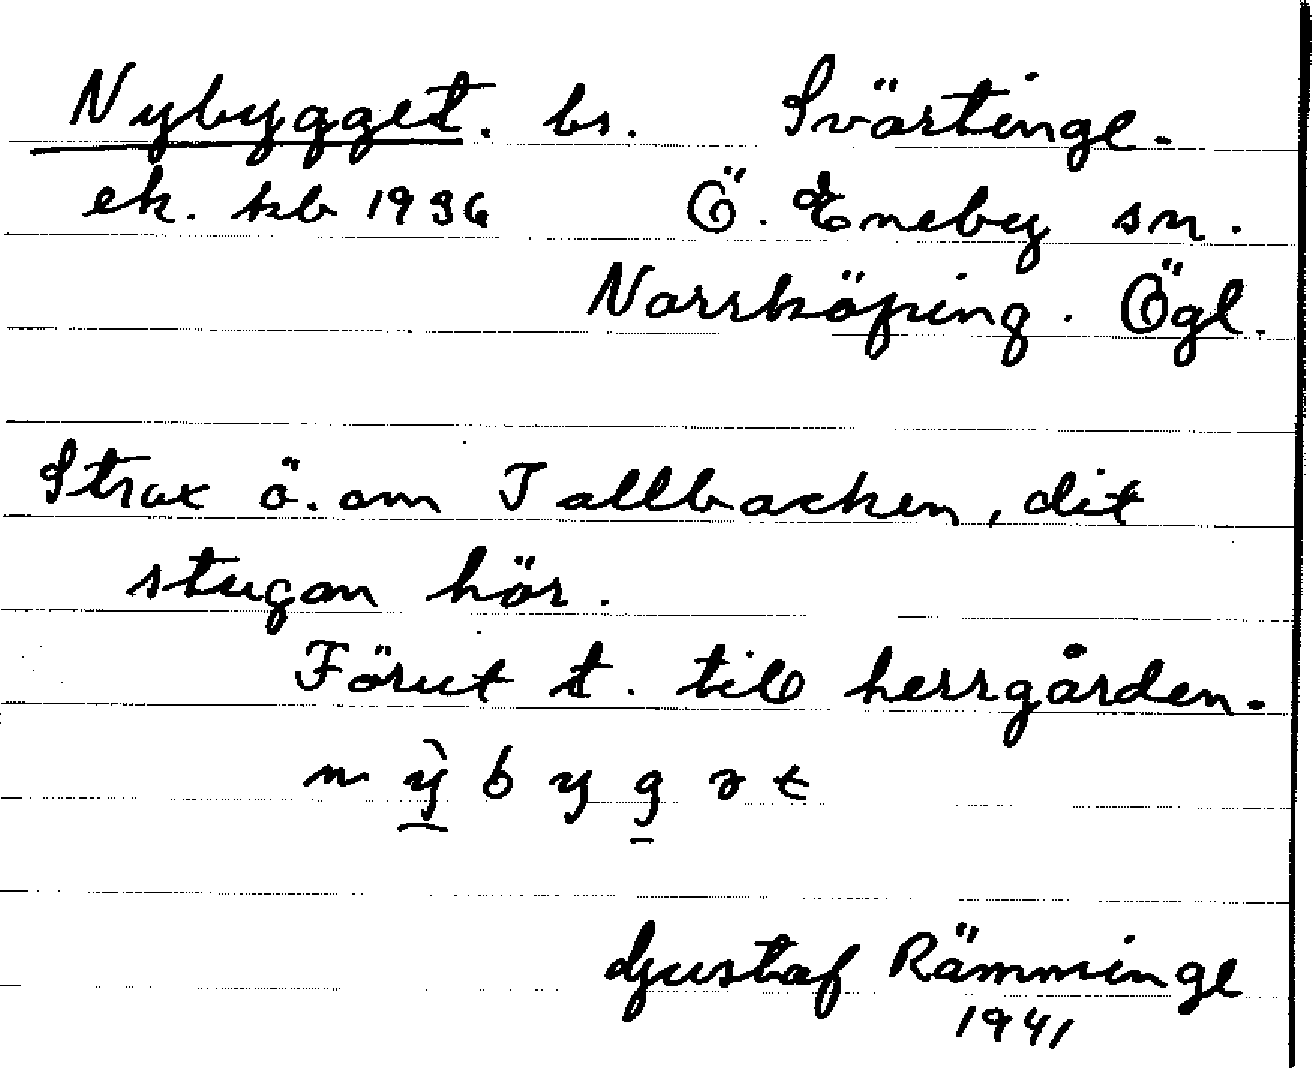 Nybygget. bs. Svärtinge.
ek. kb 1936 Ö. Eneby sn.
Norrköping. Ögl.
Strax ö. om Tallbacken, dit
stugan hör.
Förut t. till herrgården.
Gustaf Rämminge
1941